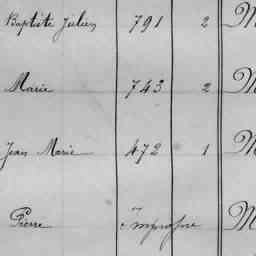 Baptiste Julien 791 2 M
Marie 743 2 M
Jean Marie 472 1 M
Pierre Impropre M